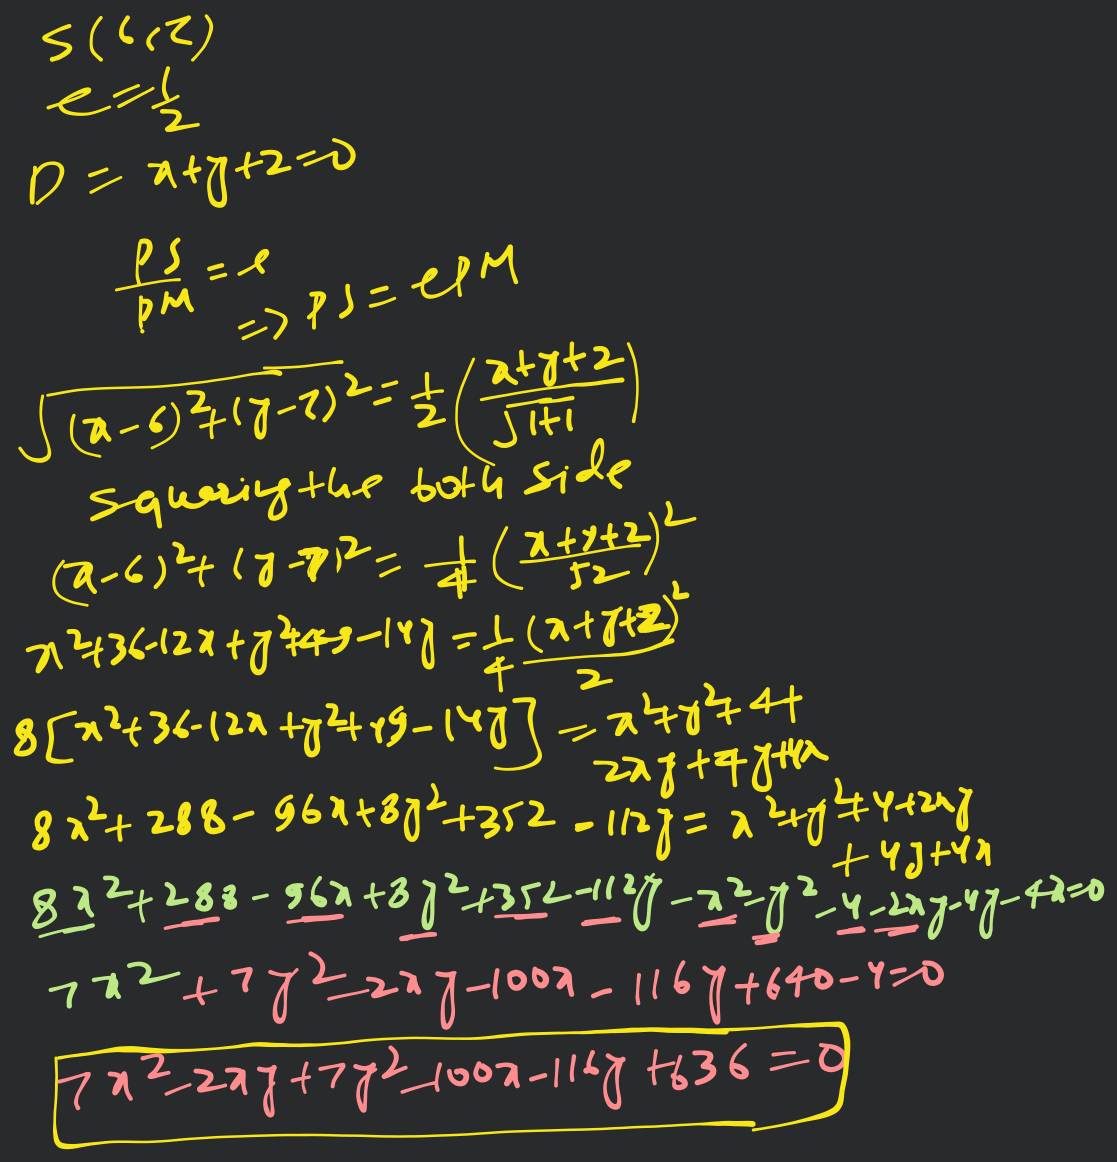 S(6,7)
e=1/2
D = x+y+2=0
PS/PM = e
=> PS = ePM
√((x-6)²+(y-7)²) = 1/2 ((x+y+2)/√(1+1))
squaring the both side
(x-6)²+(y-7)² = 1/4 ((x+y+2)/√2)²
x²+36-12x+y²+49-14y = 1/4 (x+y+2)²/2
8[x²+36-12x+y²+49-14y] = x²+y²+4+
2xy+4y+4x
8x²+288-96x+8y²+352-112y = x²+y²+4+2xy
+4y+4x
8x²+288-96x+8y²+352-112y-x²-y²-4-2xy-4y-4x=0
7x²+7y²-2xy-100x-116y+640-4=0
7x²-2xy+7y²-100x-116y+636=0